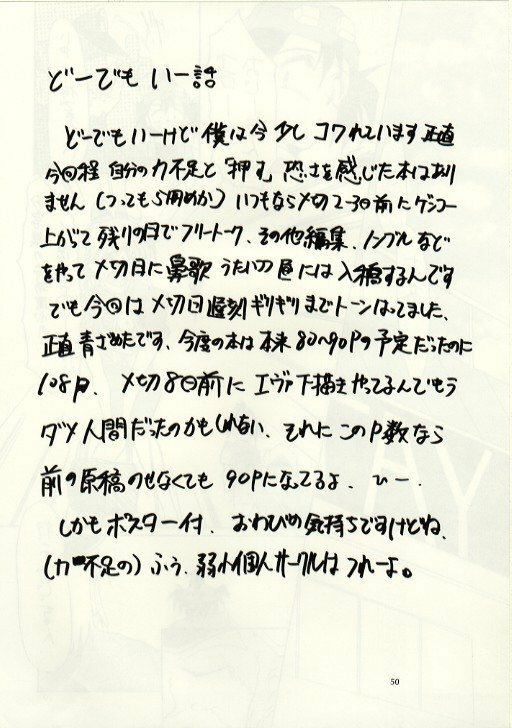 どーでもいー話
どーでもいーけど僕は今少しコワれています正直
今回程自分の力不足と「押す」恐さを感じた本はあり
ません(つっても5冊めか)いつもなら〆切2~3日前にゲンコー
上がって残りの日でフリートーク、その他編集、ノンブルなど
をやって〆切日に鼻歌うたいつつ昼には入稿するんです
でも今回は〆切日遅刻ギリギリまでトーンはってました、
正直青ざめたです、今度の本は本来80~90Pの予定だったのに
108P、〆切8日前にエヴァ下描きやってるんでもう
ダメ人間だったのかもしれない、それにこのP数なら
前の原稿のせなくても90Pになってるよ、ひー、
しかもポスター付、おわびの気持ちですけどね、
(力不足の)ふぅ、弱小個人サークルはつれーよ。
50